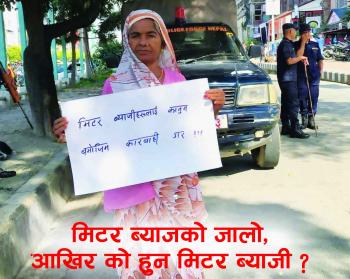 POLICE FORCE NEPAL
मिटर ब्याजीहरूलाई कानुन
बमोजिम कारवाही गर !!!
मिटर ब्याजको जालो,
आखिर को हुन मिटर ब्याजी ?